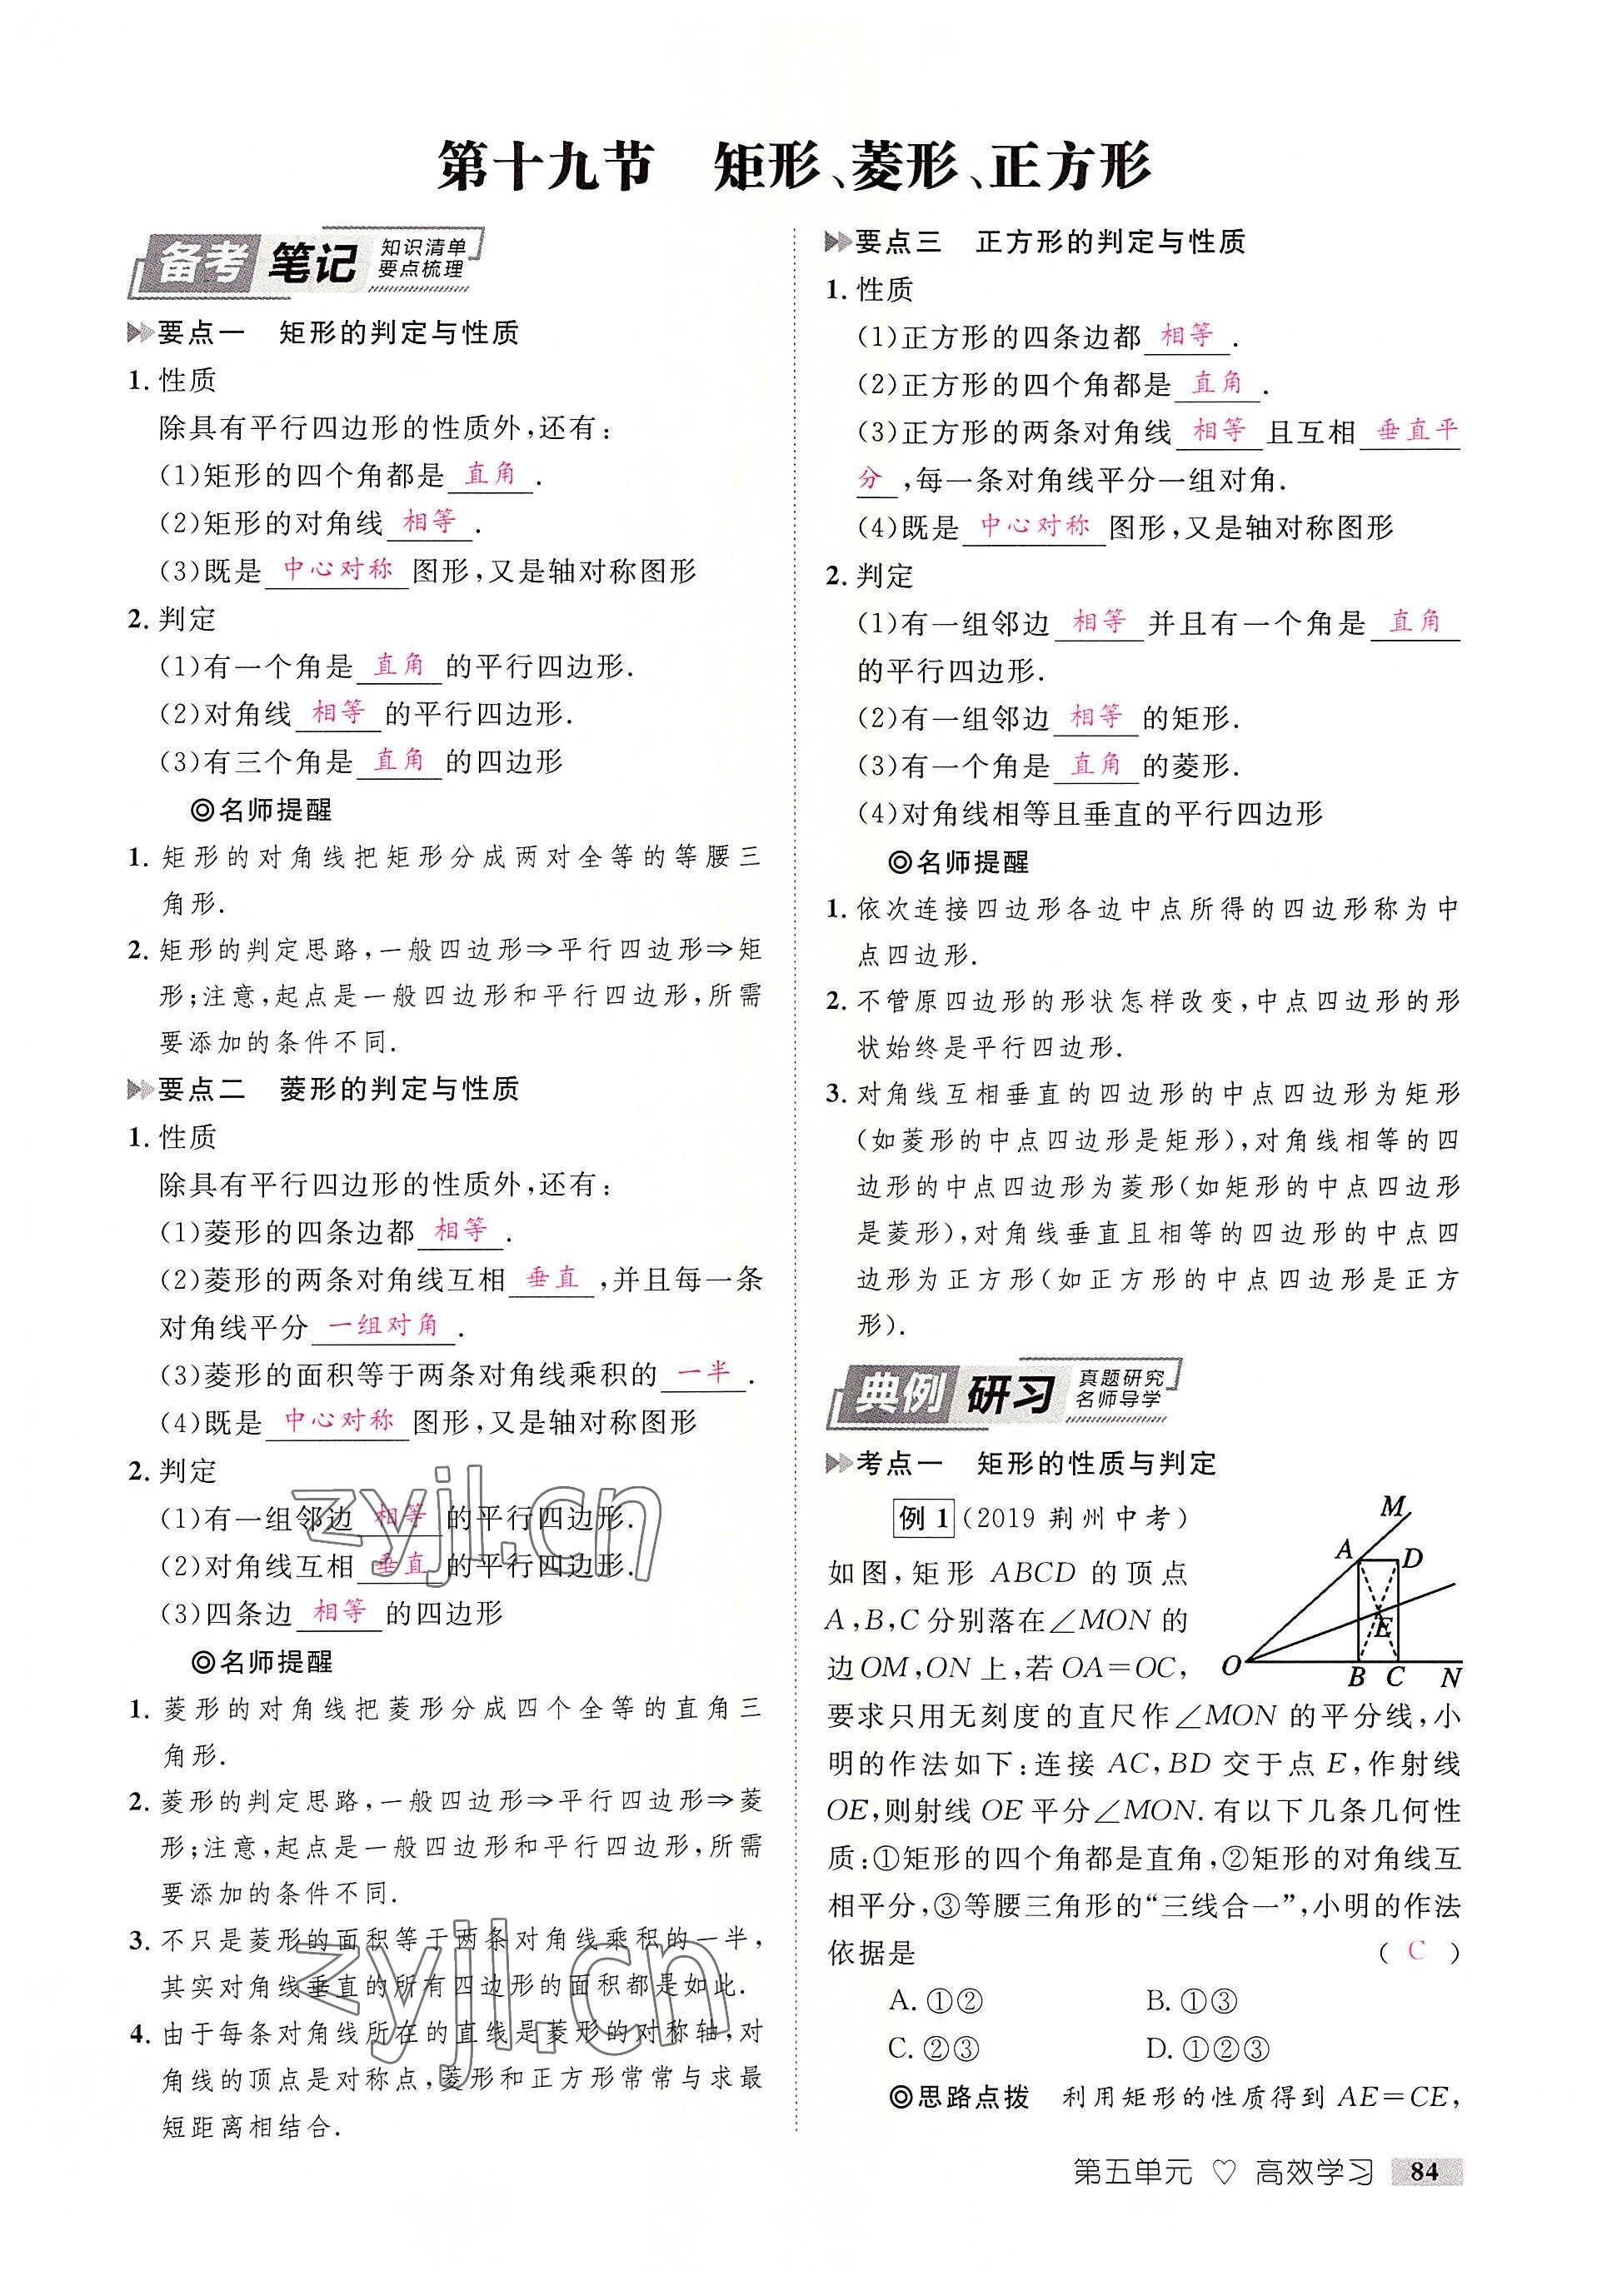 第十九节 矩形、菱形、正方形
备考 笔记 知识清单 要点梳理
要点一 矩形的判定与性质
1. 性质
除具有平行四边形的性质外,还有:
(1)矩形的四个角都是 直角 .
(2)矩形的对角线 相等 .
(3)既是 中心对称 图形,又是轴对称图形
2. 判定
(1)有一个角是 直角 的平行四边形.
(2)对角线 相等 的平行四边形.
(3)有三个角是 直角 的四边形
◎名师提醒
1. 矩形的对角线把矩形分成两对全等的等腰三
角形.
2. 矩形的判定思路,一般四边形⇒平行四边形⇒矩
形;注意,起点是一般四边形和平行四边形,所需
要添加的条件不同.
要点二 菱形的判定与性质
1. 性质
除具有平行四边形的性质外,还有:
(1)菱形的四条边都 相等 .
(2)菱形的两条对角线互相 垂直 ,并且每一条
对角线平分 一组对角 .
(3)菱形的面积等于两条对角线乘积的 一半 .
(4)既是 中心对称 图形,又是轴对称图形
2. 判定
(1)有一组邻边 相等 的平行四边形.
(2)对角线互相 垂直 的平行四边形.
(3)四条边 相等 的四边形
◎名师提醒
1. 菱形的对角线把菱形分成四个全等的直角三
角形.
2. 菱形的判定思路,一般四边形⇒平行四边形⇒菱
形;注意,起点是一般四边形和平行四边形,所需
要添加的条件不同.
3. 不只是菱形的面积等于两条对角线乘积的一半,
其实对角线垂直的所有四边形的面积都是如此.
4. 由于每条对角线所在的直线是菱形的对称轴,对
角线的顶点是对称点,菱形和正方形常常与求最
短距离相结合.
要点三 正方形的判定与性质
1. 性质
(1)正方形的四条边都 相等 .
(2)正方形的四个角都是 直角 .
(3)正方形的两条对角线 相等 且互相 垂直平
分 ,每一条对角线平分一组对角.
(4)既是 中心对称 图形,又是轴对称图形
2. 判定
(1)有一组邻边 相等 并且有一个角是 直角
的平行四边形.
(2)有一组邻边 相等 的矩形.
(3)有一个角是 直角 的菱形.
(4)对角线相等且垂直的平行四边形
◎名师提醒
1. 依次连接四边形各边中点所得的四边形称为中
点四边形.
2. 不管原四边形的形状怎样改变,中点四边形的形
状始终是平行四边形.
3. 对角线互相垂直的四边形的中点四边形为矩形
(如菱形的中点四边形是矩形),对角线相等的四
边形的中点四边形为菱形(如矩形的中点四边形
是菱形),对角线垂直且相等的四边形的中点四
边形为正方形(如正方形的中点四边形是正方
形).
典例 研习 真题研究 名师导学
考点一 矩形的性质与判定
例1 (2019 荆州中考)
如图,矩形 ABCD 的顶点
A,B,C 分别落在∠MON 的
边OM,ON 上,若 OA=OC,
要求只用无刻度的直尺作∠MON 的平分线,小
明的作法如下:连接 AC,BD 交于点 E,作射线
OE,则射线 OE 平分∠MON. 有以下几条几何性
质:①矩形的四个角都是直角,②矩形的对角线互
相平分,③等腰三角形的“三线合一”,小明的作法
依据是 ( C )
A. ①② B. ①③
C. ②③ D. ①②③
◎思路点拨 利用矩形的性质得到 AE=CE,
M
A D
E
O B C N
第五单元 ♡ 高效学习 84
zyjl.cn
zyjl.cn